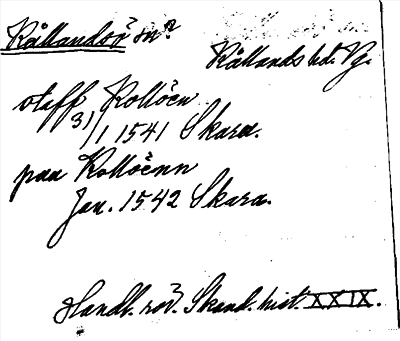 Kållandsö sn?
Kållands hd. Vg.
vtaff Kollöen
31/1 1541 Skara.
paa Kollöenn
Jan. 1542 Skara.
Handl. rör. Skand. hist. XXIX.